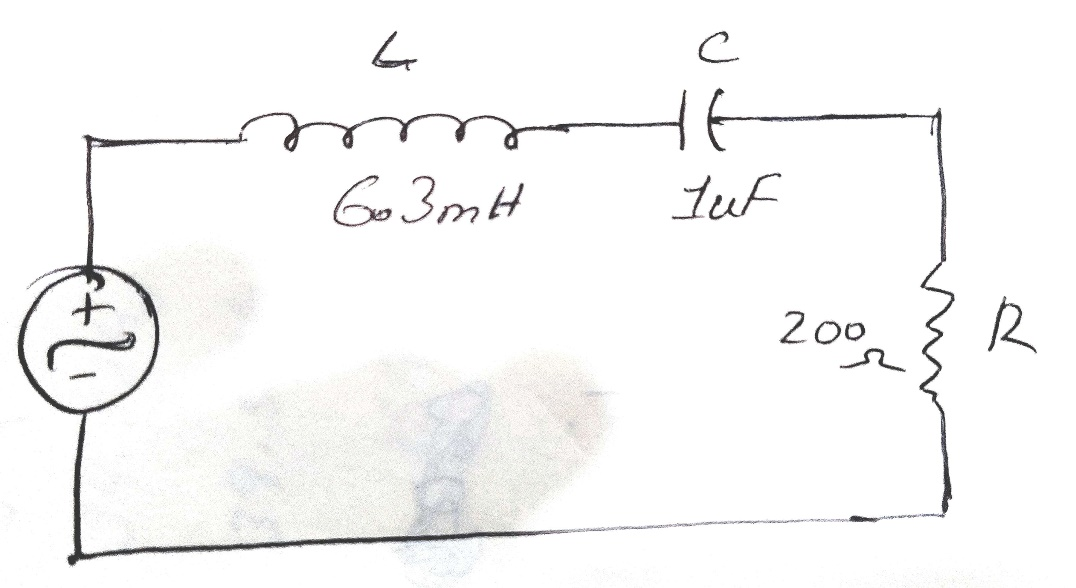 L
C
603mH
1uF
+
200
Ω
R
-